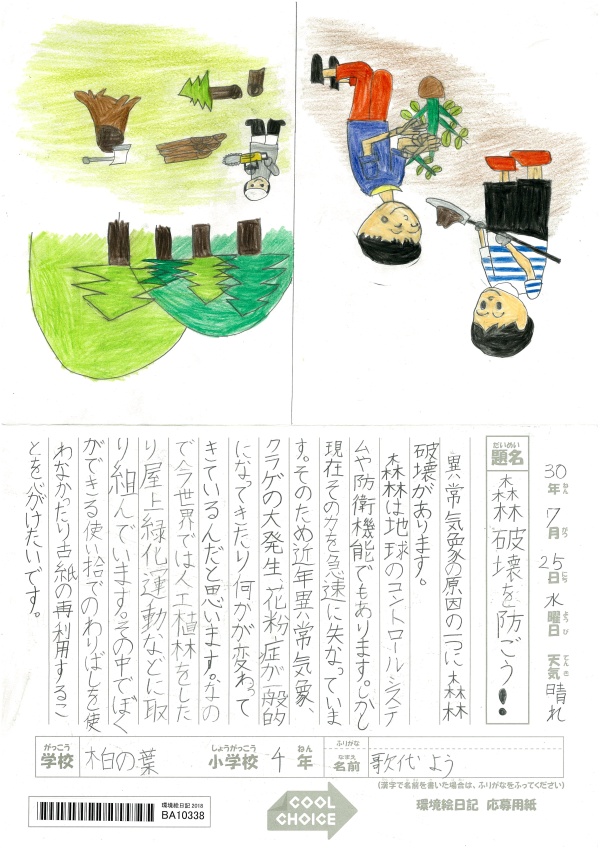 30年7月25日水曜日 天気 晴れ
ねん がつ にち ようび てんき
だいめい
題名
森林破壊を防ごう!
異常気象の原因の一つに森林
破壊があります。
森林は地球のコントロールシステ
ムや防衛機能でもあります。しかし
現在その力を急速に失なっていま
す。そのため近年異常気象、
クラゲの大発生、花粉症が一般的
になってきたり何かが変わって
きているんだと思います。なの
で今世界では人工植林をした
り屋上緑化運動などに取
り組んでいます。その中でぼく
ができる使い捨てのわりばしを使
わなかったり古紙の再利用するこ
とを心がけたいです。
がっこう しょうがっこう ねん
学校 柏の葉 小学校 4年
ふりがな
なまえ
名前 歌代 よう
(漢字で名前を書いた場合は、ふりがなをふってください)
環境絵日記2018
BA10338
COOL
CHOICE
環境絵日記 応募用紙